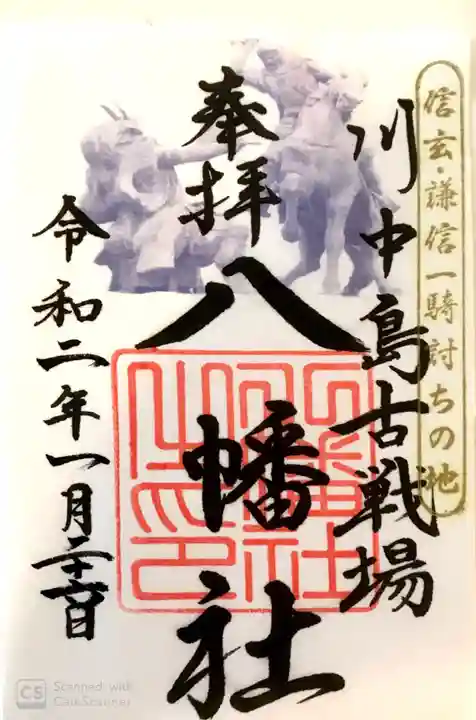 信玄・謙信一騎討ちの地
川中島古戦場
奉拝
八幡社
令和二年一月二十六日
CS Scanned with
CamScanner